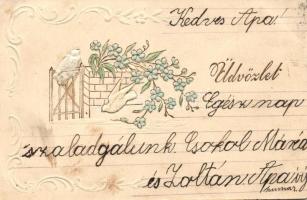 Kedves Apa!
Üdvözlet
Egész nap
szaladgálunk. Csokol Mára
és Zoltán Apa